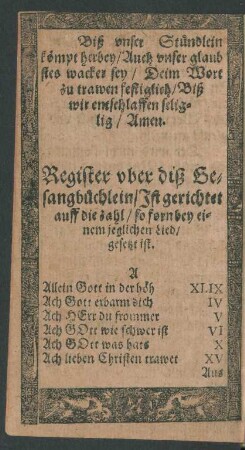 Biß vnser Stündlein
kömpt herbey/Auch vnser glaub
stes wacker sey / Deim Wort
zu trawen festiglich/Biß
wir entschlaffen selig-
lig / Amen.
Register vber diß Ge-
sangbüchlein/Ist gerichtet
auff die zahl/ so fornbey ei-
nem jeglichen Lied/
gesetzt ist.
A
Allein Gott in der höh XLIX
Ach Gott erbarm dich IV
Ach HErr du frommer V
Ach GOtt wie schwer ist VI
Ach GOtt was hats X
Ach lieben Christen trawet XV
Aus